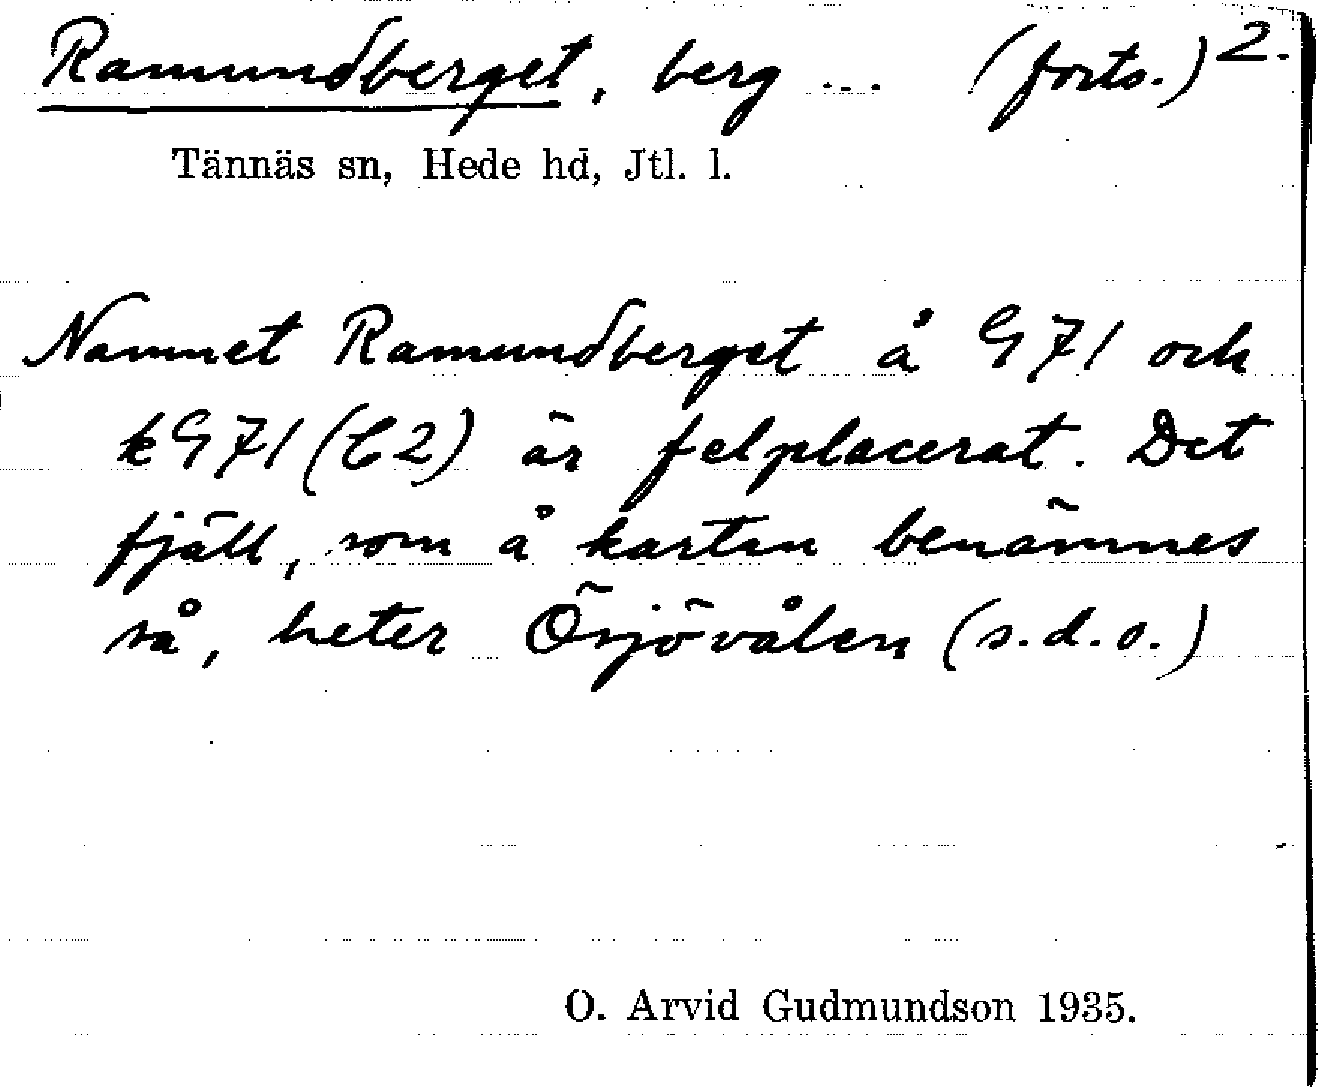 Ramundberget, berg ... (forts.) 2.
Tännäs sn, Hede hd, Jtl. l.
Namnet Ramundberget å G71 och
kG71 (C2) är felplacerat. Det
fjäll, som å kartan benämnes
så, heter Örjövålen (s.d.o.)
O. Arvid Gudmundson 1935.